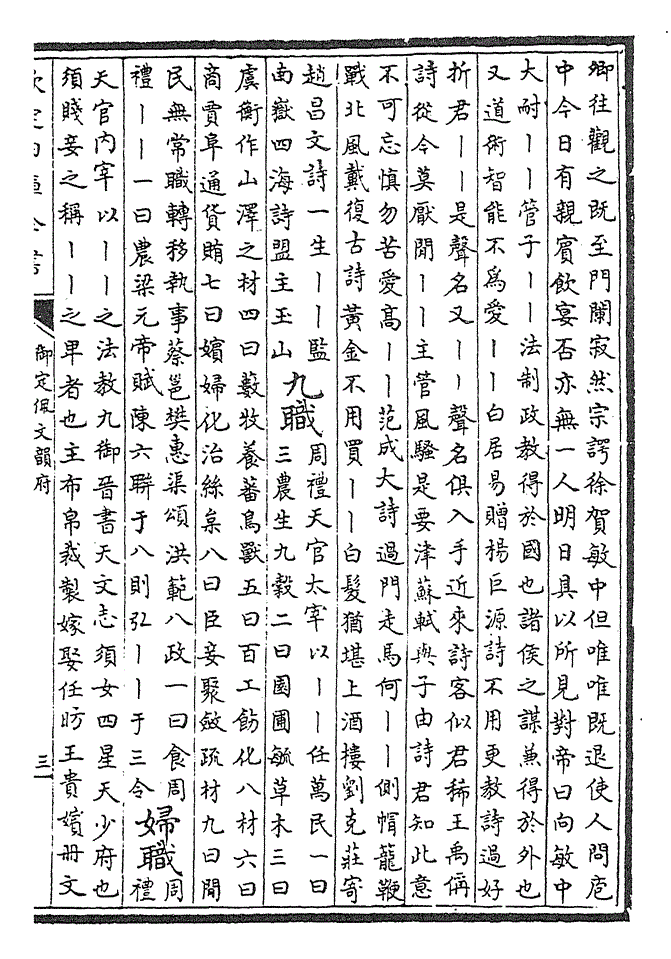 卿往觀之既至門闌寂然宗諤徐賀敏中但唯唯既退使人問庖
中今日有親賓飲宴否亦無一人明日具以所見對帝曰向敏中
大耐丨丨管子丨丨法制政教得於國也諸侯之謀兼得於外也
又道術智能不為愛丨丨白居易贈楊巨源詩不用更教詩過好
折君丨丨是聲名又丨丨聲名俱入手近來詩客似君稀王禹偁
詩從今莫厭閒丨丨主管風騷是要津蘇軾與子由詩君知此意
不可忘慎勿苦愛高丨丨范成大詩過門走馬何丨丨側帽籠鞭
戰北風戴復古詩黃金不用買丨丨白髮猶堪上酒樓劉克莊寄
趙昌文詩一生丨丨監
南嶽四海詩盟主玉山
九職
周禮天官太宰以丨丨任萬民一曰
三農生九穀二曰園圃毓草木三曰
虞衡作山澤之材四曰藪牧養蕃鳥獸五曰百工飭化八材六曰
商賈阜通貨賄七曰嬪婦化治絲枲八曰臣妾聚斂疏材九曰閒
民無常職轉移執事蔡邕樊惠渠頌洪範八政一曰食周
禮丨丨一曰農梁元帝賦陳六聯于八則弘丨丨于三令
婦職
周
禮
天官內宰以丨丨之法教九御晉書天文志須女四星天少府也
須賤妾之稱丨丨之卑者也主布帛裁製嫁娶任昉王貴嬪冊文
御定佩文韻府
三